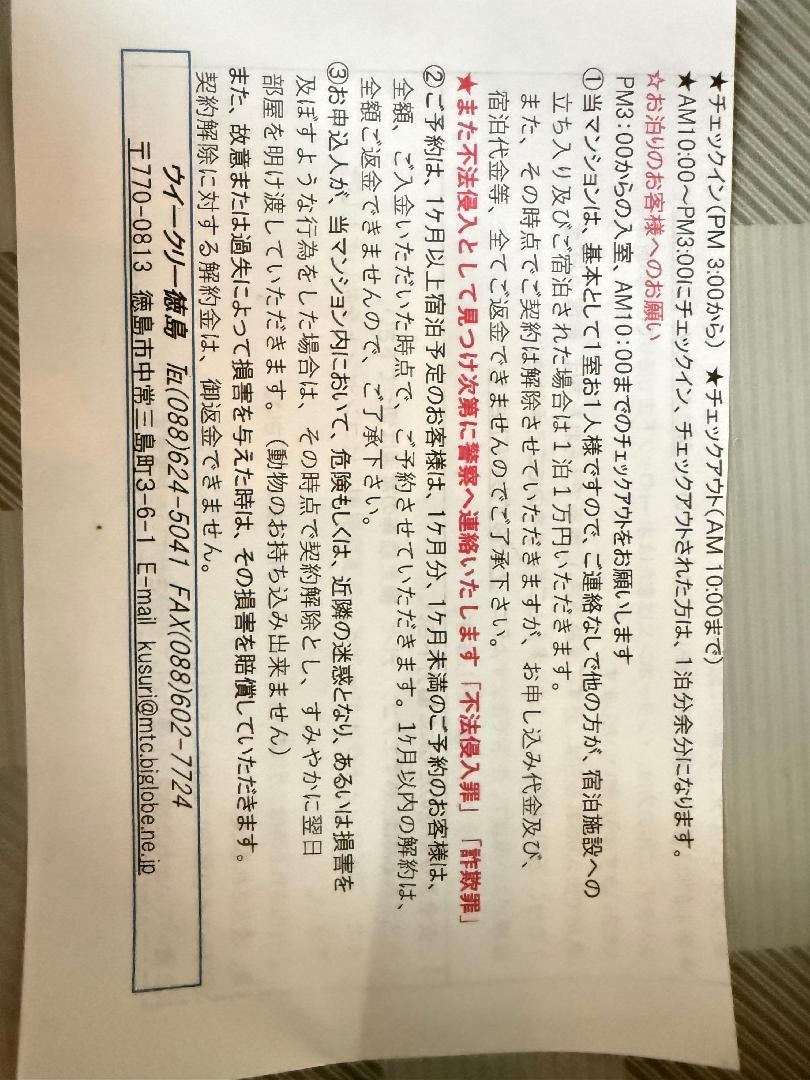 ★チェックイン(PM 3:00から) ★チェックアウト(AM 10:00まで)
★AM10:00~PM3:00にチェックイン、チェックアウトされた方は、1泊分余分になります。
☆お泊りのお客様へのお願い
PM3:00からの入室、AM10:00までのチェックアウトをお願いします
①当マンションは、基本として1室お1人様ですので、ご連絡なしで他の方が、宿泊施設への
立ち入り及びご宿泊された場合は1泊1万円いただきます。
また、その時点でご契約は解除させていただきますが、お申し込み代金及び、
宿泊代金等、全てご返金できませんのでご了承下さい。
★また不法侵入として見つけ次第に警察へ連絡いたします「不法侵入罪」「詐欺罪」
②ご予約は、1ケ月以上宿泊予定のお客様は、1ケ月分、1ケ月未満のご予約のお客様は、
全額、ご入金いただいた時点で、ご予約させていただきます。1ケ月以内の解約は、
全額ご返金できませんので、ご了承下さい。
③お申込人が、当マンション内において、危険もしくは、近隣の迷惑となり、あるいは損害を
及ぼすような行為をした場合は、その時点で契約解除とし、すみやかに翌日
部屋を明け渡していただきます。(動物のお持ち込み出来ません)
また、故意または過失によって損害を与えた時は、その損害を賠償していただきます。
契約解除に対する解約金は、御返金できません。
ウイークリー徳島 ℡(088)624-5041 FAX(088)602-7724
〒770-0813 徳島市中常三島町3-6-1 E-mail kusuri@mtc.biglobe.ne.jp